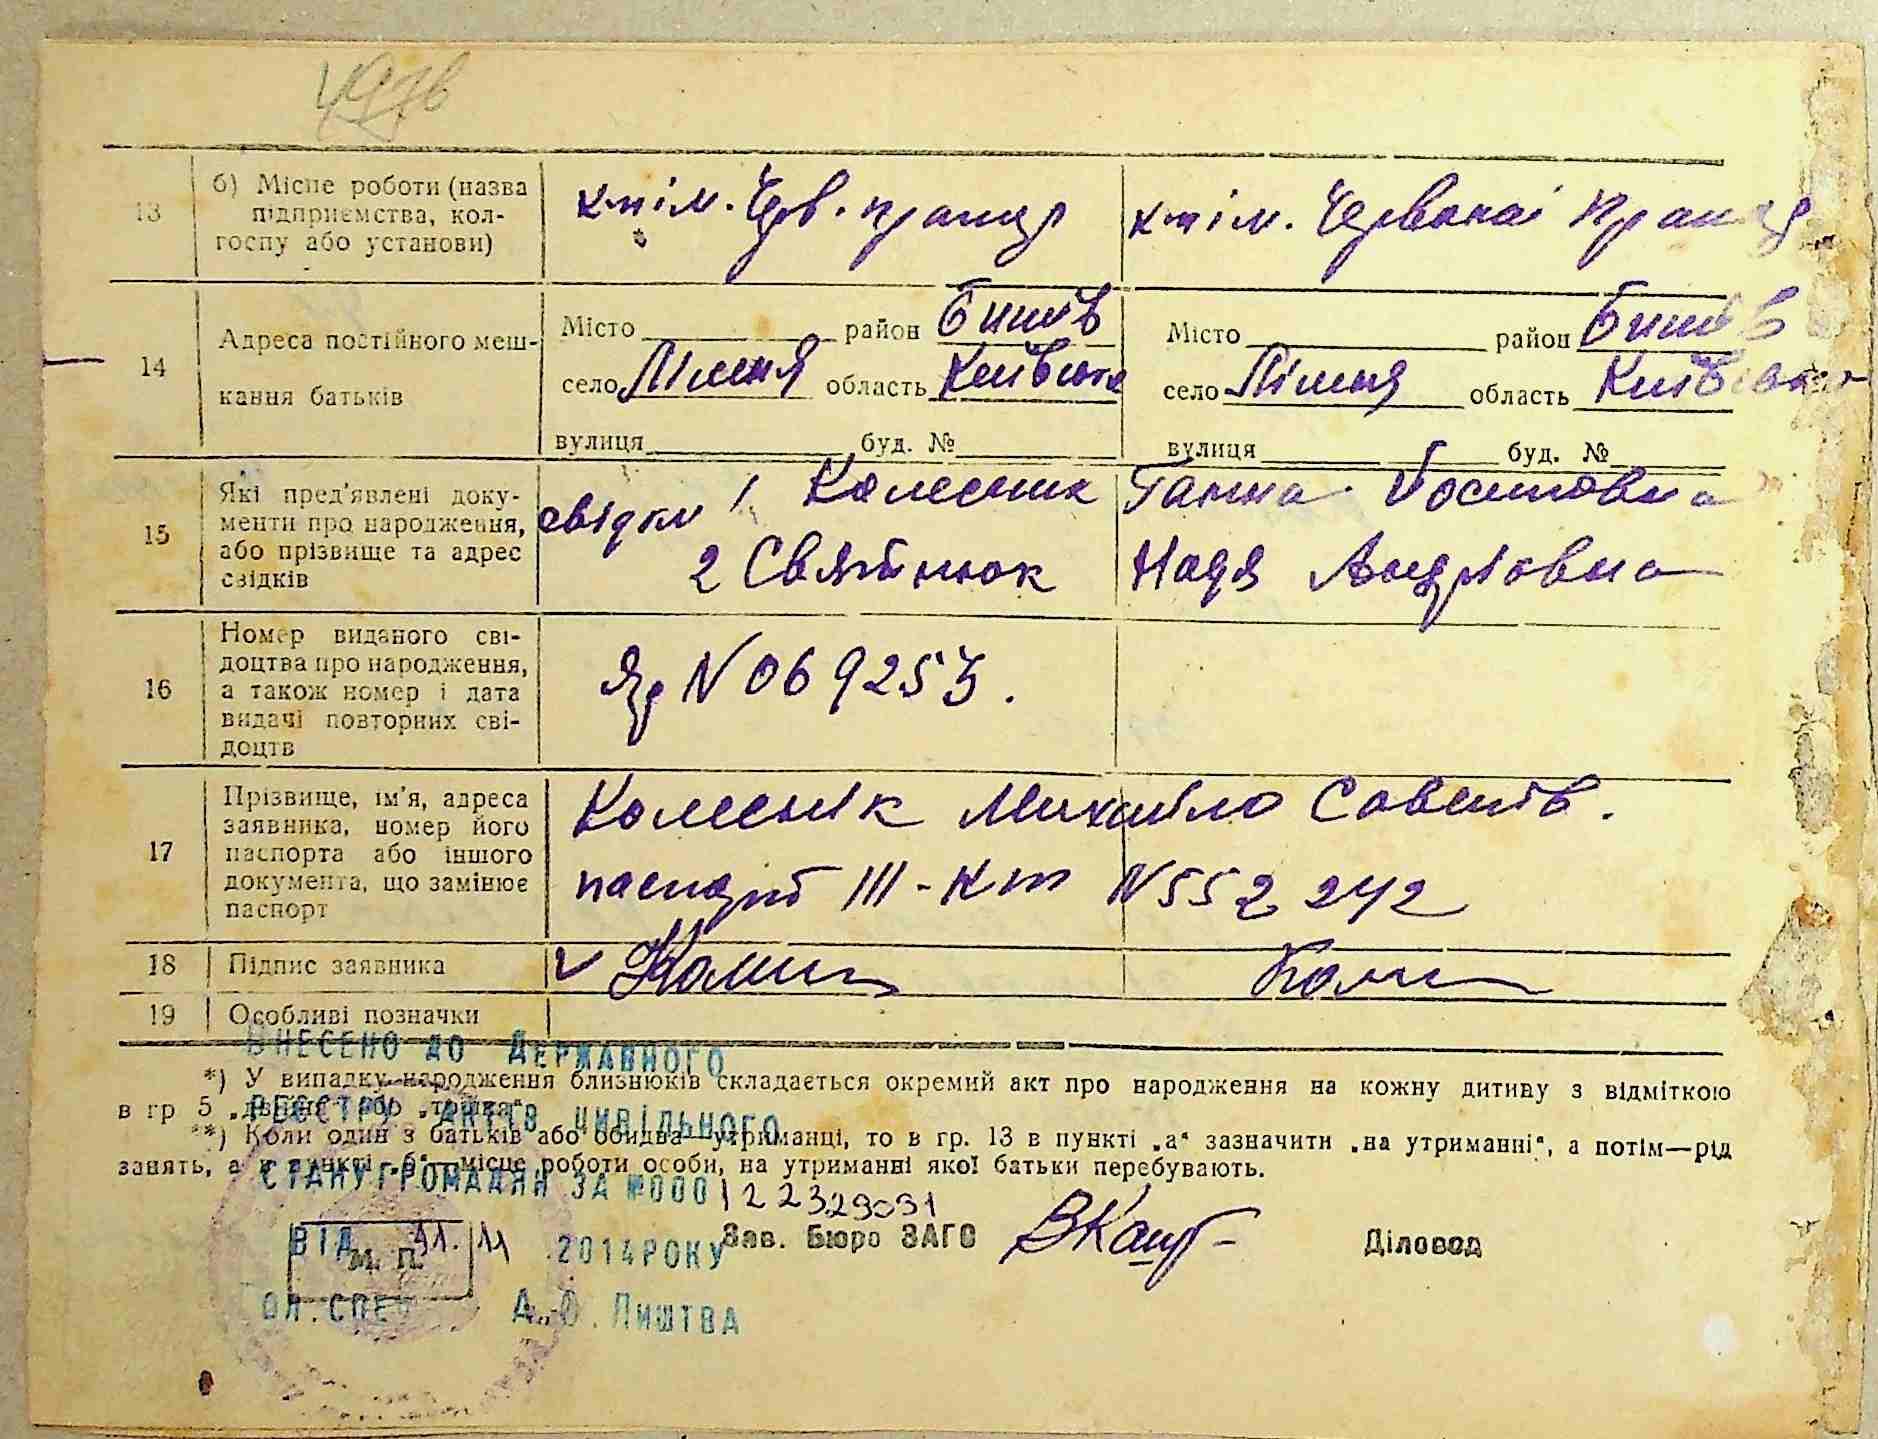 13 б) Місце роботи (назва
підприємства, кол-
госпу або установи)
к-п ім. Черв. прапор к-п ім. Червоній Прапор
14 Адреса постійного меш-
кання батьків
Місто район Бишів Місто район Бишів
село Лішня область Київська село Лішня область Київська
вулиця буд. № вулиця буд. №
15 Які пред'явлені доку-
менти про народження,
або прізвище та адрес
свідків
свідки 1 Колесник Ганна Йосиповна
2 Святинюк Надя Андріовна
16 Номер виданого сві-
доцтва про народження,
а також номер і дата
видачі повторних сві-
доцтв
№ 069253.
17 Прізвище, ім'я, адреса
заявника, номер його
паспорта або іншого
документа, що замінює
паспорт
Колеснік Михайло Саветів.
паспорт III-КТ N 552242
18 Підпис заявника
19 Особливі позначки
ВНЕСЕНО ДО ДЕРЖАВНОГО
РЕЄСТРУ АКТІВ ЦИВІЛЬНОГО
СТАНУ ГРОМАДЯН ЗА №000122329031
ВІД 11.11.2014РОКУ
ГОЛ.СПЕЦ А.О.ЛИШТВА
*) У випадку народження близнюків складається окремий акт про народження на кожну дитину з відміткою
в гр 5 „двійня“ або „трійка“.
**) Коли один з батьків або обидва—утриманці, то в гр. 13 в пункті „а“ зазначити „на утриманні“, а потім—рід
занять, а в пункті „б“—місце роботи особи, на утриманні якої батьки перебувають.
М. П. Зав. Бюро ЗАГС Діловод